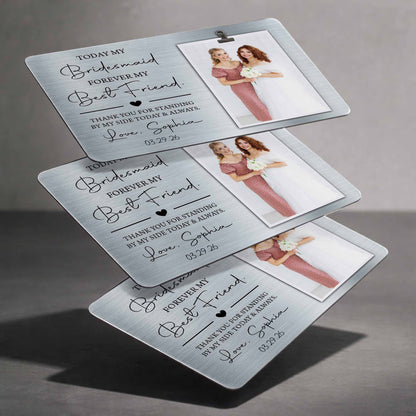 TODAY MY
Bridesmaid
FOREVER MY
Best Friend.
THANK YOU FOR STANDING
BY MY SIDE TODAY & ALWAYS.
Love, Sophia
03.29.26
TODAY MY
Bridesmaid
FOREVER MY
Best Friend.
THANK YOU FOR STANDING
BY MY SIDE TODAY & ALWAYS.
Love, Sophia
03.29.26
Bridesmaid
FOREVER MY
Best Friend.
THANK YOU FOR STANDING
BY MY SIDE TODAY & ALWAYS.
Love, Sophia
03.29.26